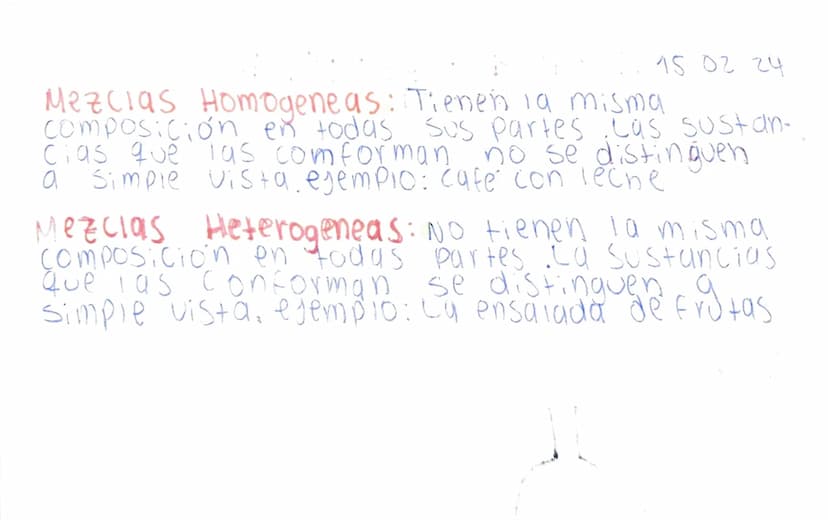 15 02 24
Mezclas Homogeneas: Tienen la misma
composición en todas sus partes. Las sustan-
cias que las comforman no se distinguen
a simple vista. ejemplo: café con leche
Mezclas Heterogeneas: No tienen la misma
composición en todas partes. La sustancias
que las conforman se distinguen a
simple vista. ejemplo: La ensalada de frutas